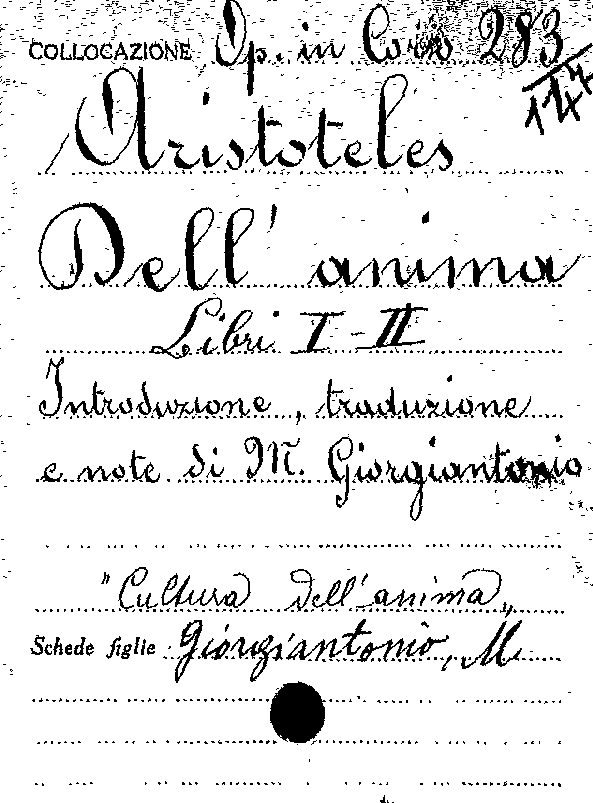 COLLOCAZIONE Op. in Corso 283
147
Aristoteles
Dell' anima
Libri I - II
Introduzione, traduzione
e note di M. Giorgiantonio
"Cultura dell'anima„
Schede figlie Giorgiantonio, M.